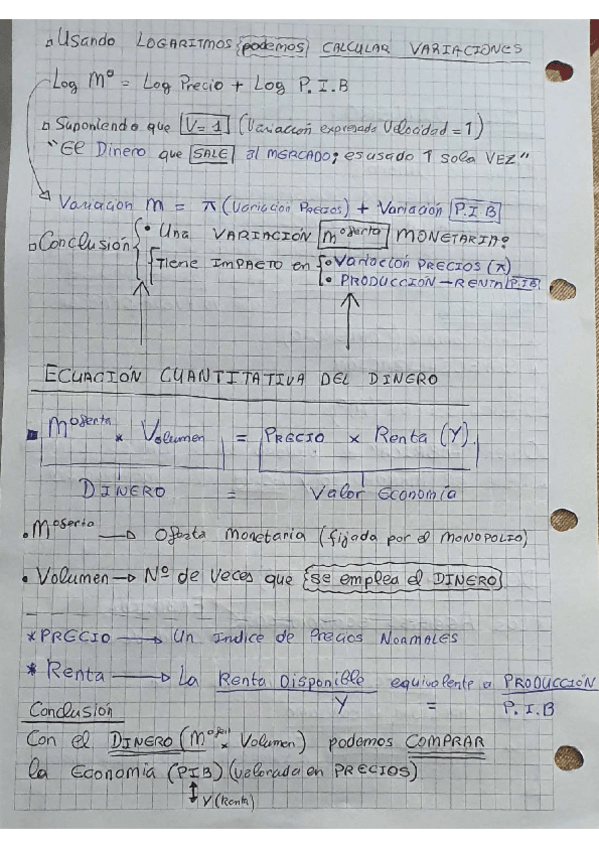 Usando LOGARITMOS podemos CALCULAR VARIACIONES
Log Mº = Log Precio + Log P.I.B
Suponiendo que V=1 (Variación expresada Velocidad = 1)
"El Dinero que SALE al MERCADO; es usado 1 sola VEZ"
Variación M = π (Variación Precios) + Variación P.I.B
Conclusión • Una VARIACIÓN Moferta MONETARIA
Tiene IMPACTO en • Variación PRECIOS (π)
• PRODUCCIÓN - RENTA P.I.B
ECUACIÓN CUANTITATIVA DEL DINERO
Moferta x Volumen = PRECIO x Renta (Y).
DINERO = Valor Economía
• Moferta → Oferta Monetaria (fijada por el MONOPOLIO)
• Volumen → Nº de veces que se emplea el DINERO
* PRECIO → Un Indice de Precios Normales
* Renta → La Renta Disponible equivalente a PRODUCCIÓN
Y = P.I.B
Conclusión
Con el DINERO (Mofer x Volumen) podemos COMPRAR
la Economía (PIB) (valorada en PRECIOS)
Y (Renta)